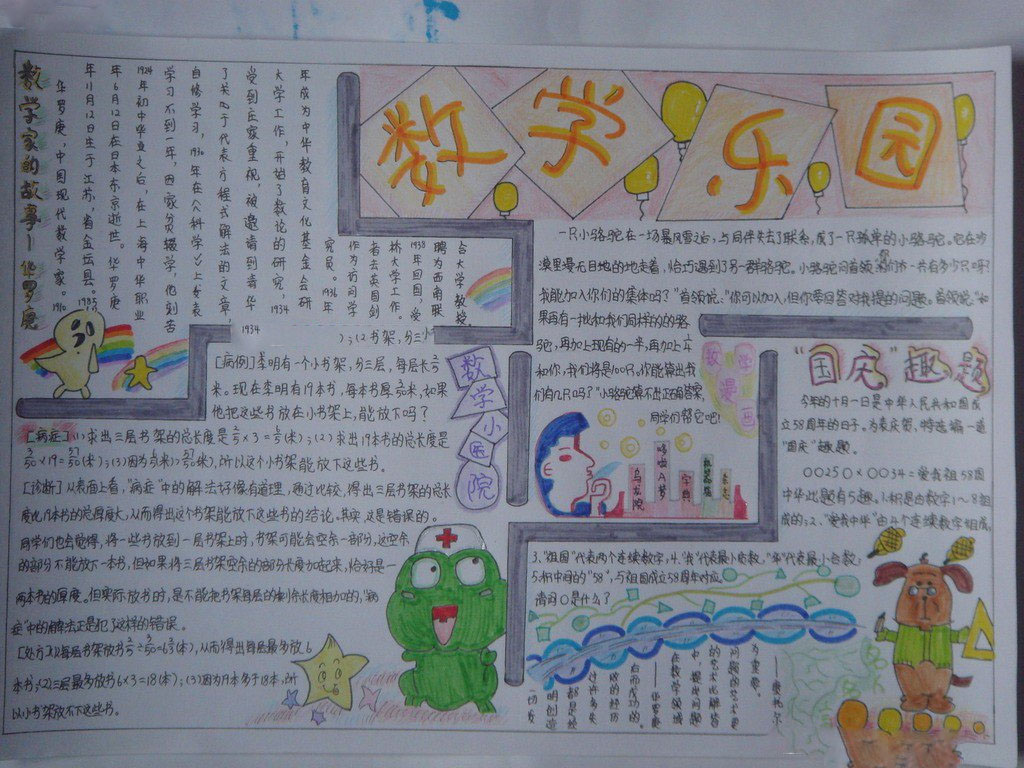 数学乐园
数学家的故事——华罗庚
华罗庚，中国现代数学家。1910
年11月12日生于江苏省金坛县。1985
年6月12日在日本东京逝世。华罗庚
1924年初中毕业之后，在上海中华职业
学习不到一年，因家贫辍学，他刻苦
自修学习，1930年在《科学》上发表
了关于代数方程式解法的文章，
受到专家重视，被邀请到清华
大学工作，开始了数论的研究，1934
年成为中华教育文化基金会研
究员。1936年
作为访问学
者去英国剑
桥大学工作。
1938年回国，受
聘为西南联
合大学教授。
1934
数学小医院
);(2书架，分三小
[病例]李明有个小书架，分三层，每层长
米。现在李明有19本书，每本书厚3/50米，如果
他把这些书放在小书架上，能放下吗？
[病症](1)求出三层书架的总长度是2/5×3=6/5(米);(2)求出19本书的总长度是
3/50×19=57/50(米);(3)因为6/5(米)>57/50(米),所以这个小书架能放下这些书。
[诊断]从表面上看，"病症"中的解法好像有道理，通过比较，得出三层书架的总长
度比19本书的总厚度大，从而得出这个书架能放下这些书的结论。其实，这是错误的。
同学们也会觉得，将一些书放到一层书架上时，书架可能会空余一部分，这空余
的部分不能放下一本书，但如果将三层书架空余的部分长度加起来，恰好是
两本书的厚度。但实际放书时，是不能把书架每层的剩余长度相加的，"病
症"中的解法正是犯了这样的错误。
[处方](1)每层书架放书2/5÷3/50=6 2/3(本),从而得出每层最多放6
本书;(2)三层最多放书6×3=18(本);(3)因为19本多于18本,所
以小书架放不下这些书。
一只小骆驼在一场暴风雪之后，与同伴失去了联系，成了一只孤单的小骆驼。它在沙
漠里漫无目的地走着，恰巧遇到了另一群骆驼。小骆驼问首领："你们一共有多少只呀？
我能加入你们的集体吗？"首领说："你可以加入，但你要回答对我提的问题。首领说："如
果再有一批和我们同样的的骆
驼，再加上现有的一半，再加上
和你，我们将是100只。你能算出我
们有几只吗？"小骆驼算不出正确答案，
同学们帮它吧！
数学漫画
乌龙院
哆啦A梦
字典
"国庆"趣题
今年的十月一日是中华人民共和国成
立58周年的日子。为表庆贺，特选编一道
"国庆"趣题。
00250×0034=爱我祖58国
中华 此题有5趣。1.积是由数字1～8组
成的;2."爱我中华"由4个连续数字组成，
3."祖国"代表两个连续数字，4."我"代表最小奇数，"华"代表最小合数，
5.积中间的"58"，与祖国成立58周年对应。
请问〇是什么？
一切发
明创造
都是经
过许多失
败的经历
而后成功的。
——华罗庚
在数学领域
中，提出问题
的艺术比解答
问题的艺术更
为重要。
——康托尔